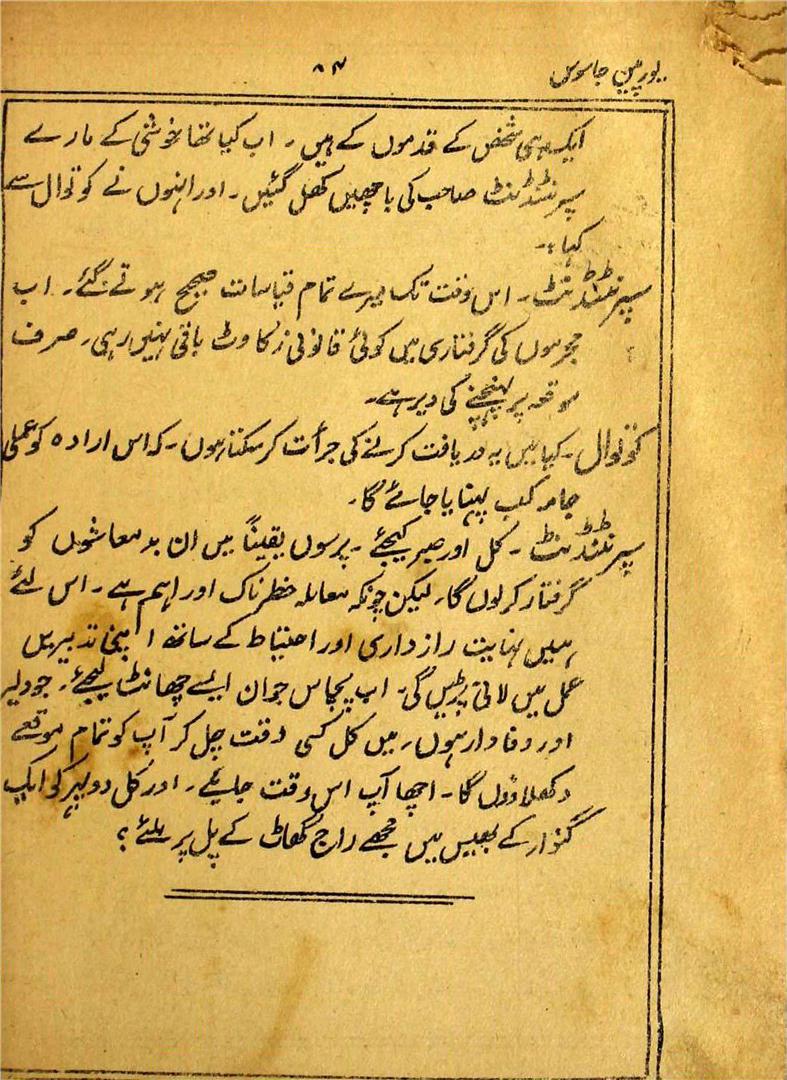 یورپین جاسوس
۸۴
ایک ہی شخص کے قدموں کے ہیں۔ اب کیا تھا خوشی کے مارے
سپرنٹنڈنٹ صاحب کی باچھیں کھل گئیں۔ اور انہوں نے کوتوال سے
کہا:۔
سپرنٹنڈنٹ۔ اس وقت تک میرے تمام قیاسات صحیح ہوتے گئے۔ اب
مجرموں کی گرفتاری میں کوئی قانونی رکاوٹ باقی نہیں رہی۔ صرف
موقعہ پر پہنچنے کی دیر ہے۔
کوتوال۔ کیا میں یہ دریافت کرنے کی جرأت کر سکتا ہوں۔ کہ اس ارادہ کو عملی
جامہ کب پہنایا جائے گا۔
سپرنٹنڈنٹ۔ کل اور صبر کیجئے۔ پرسوں یقیناً میں ان بدمعاشوں کو
گرفتار کر لوں گا۔ لیکن چونکہ معاملہ خطرناک اور اہم ہے۔ اس لئے
ہمیں نہایت رازداری اور احتیاط کے ساتھ اپنی تدبیریں
عمل میں لانی پڑیں گی۔ اب پچاس جوان ایسے چھانٹ لیجئے۔ جو دلیر
اور وفادار ہوں۔ میں کل کسی وقت چل کر آپ کو تمام موقعے
دکھلا دوں گا۔ اچھا آپ اس وقت جایئے۔ اور کل دوپہر کو ایک
گنوار کے بھیس میں مجھے راج گھاٹ کے پل پر ملئے؟